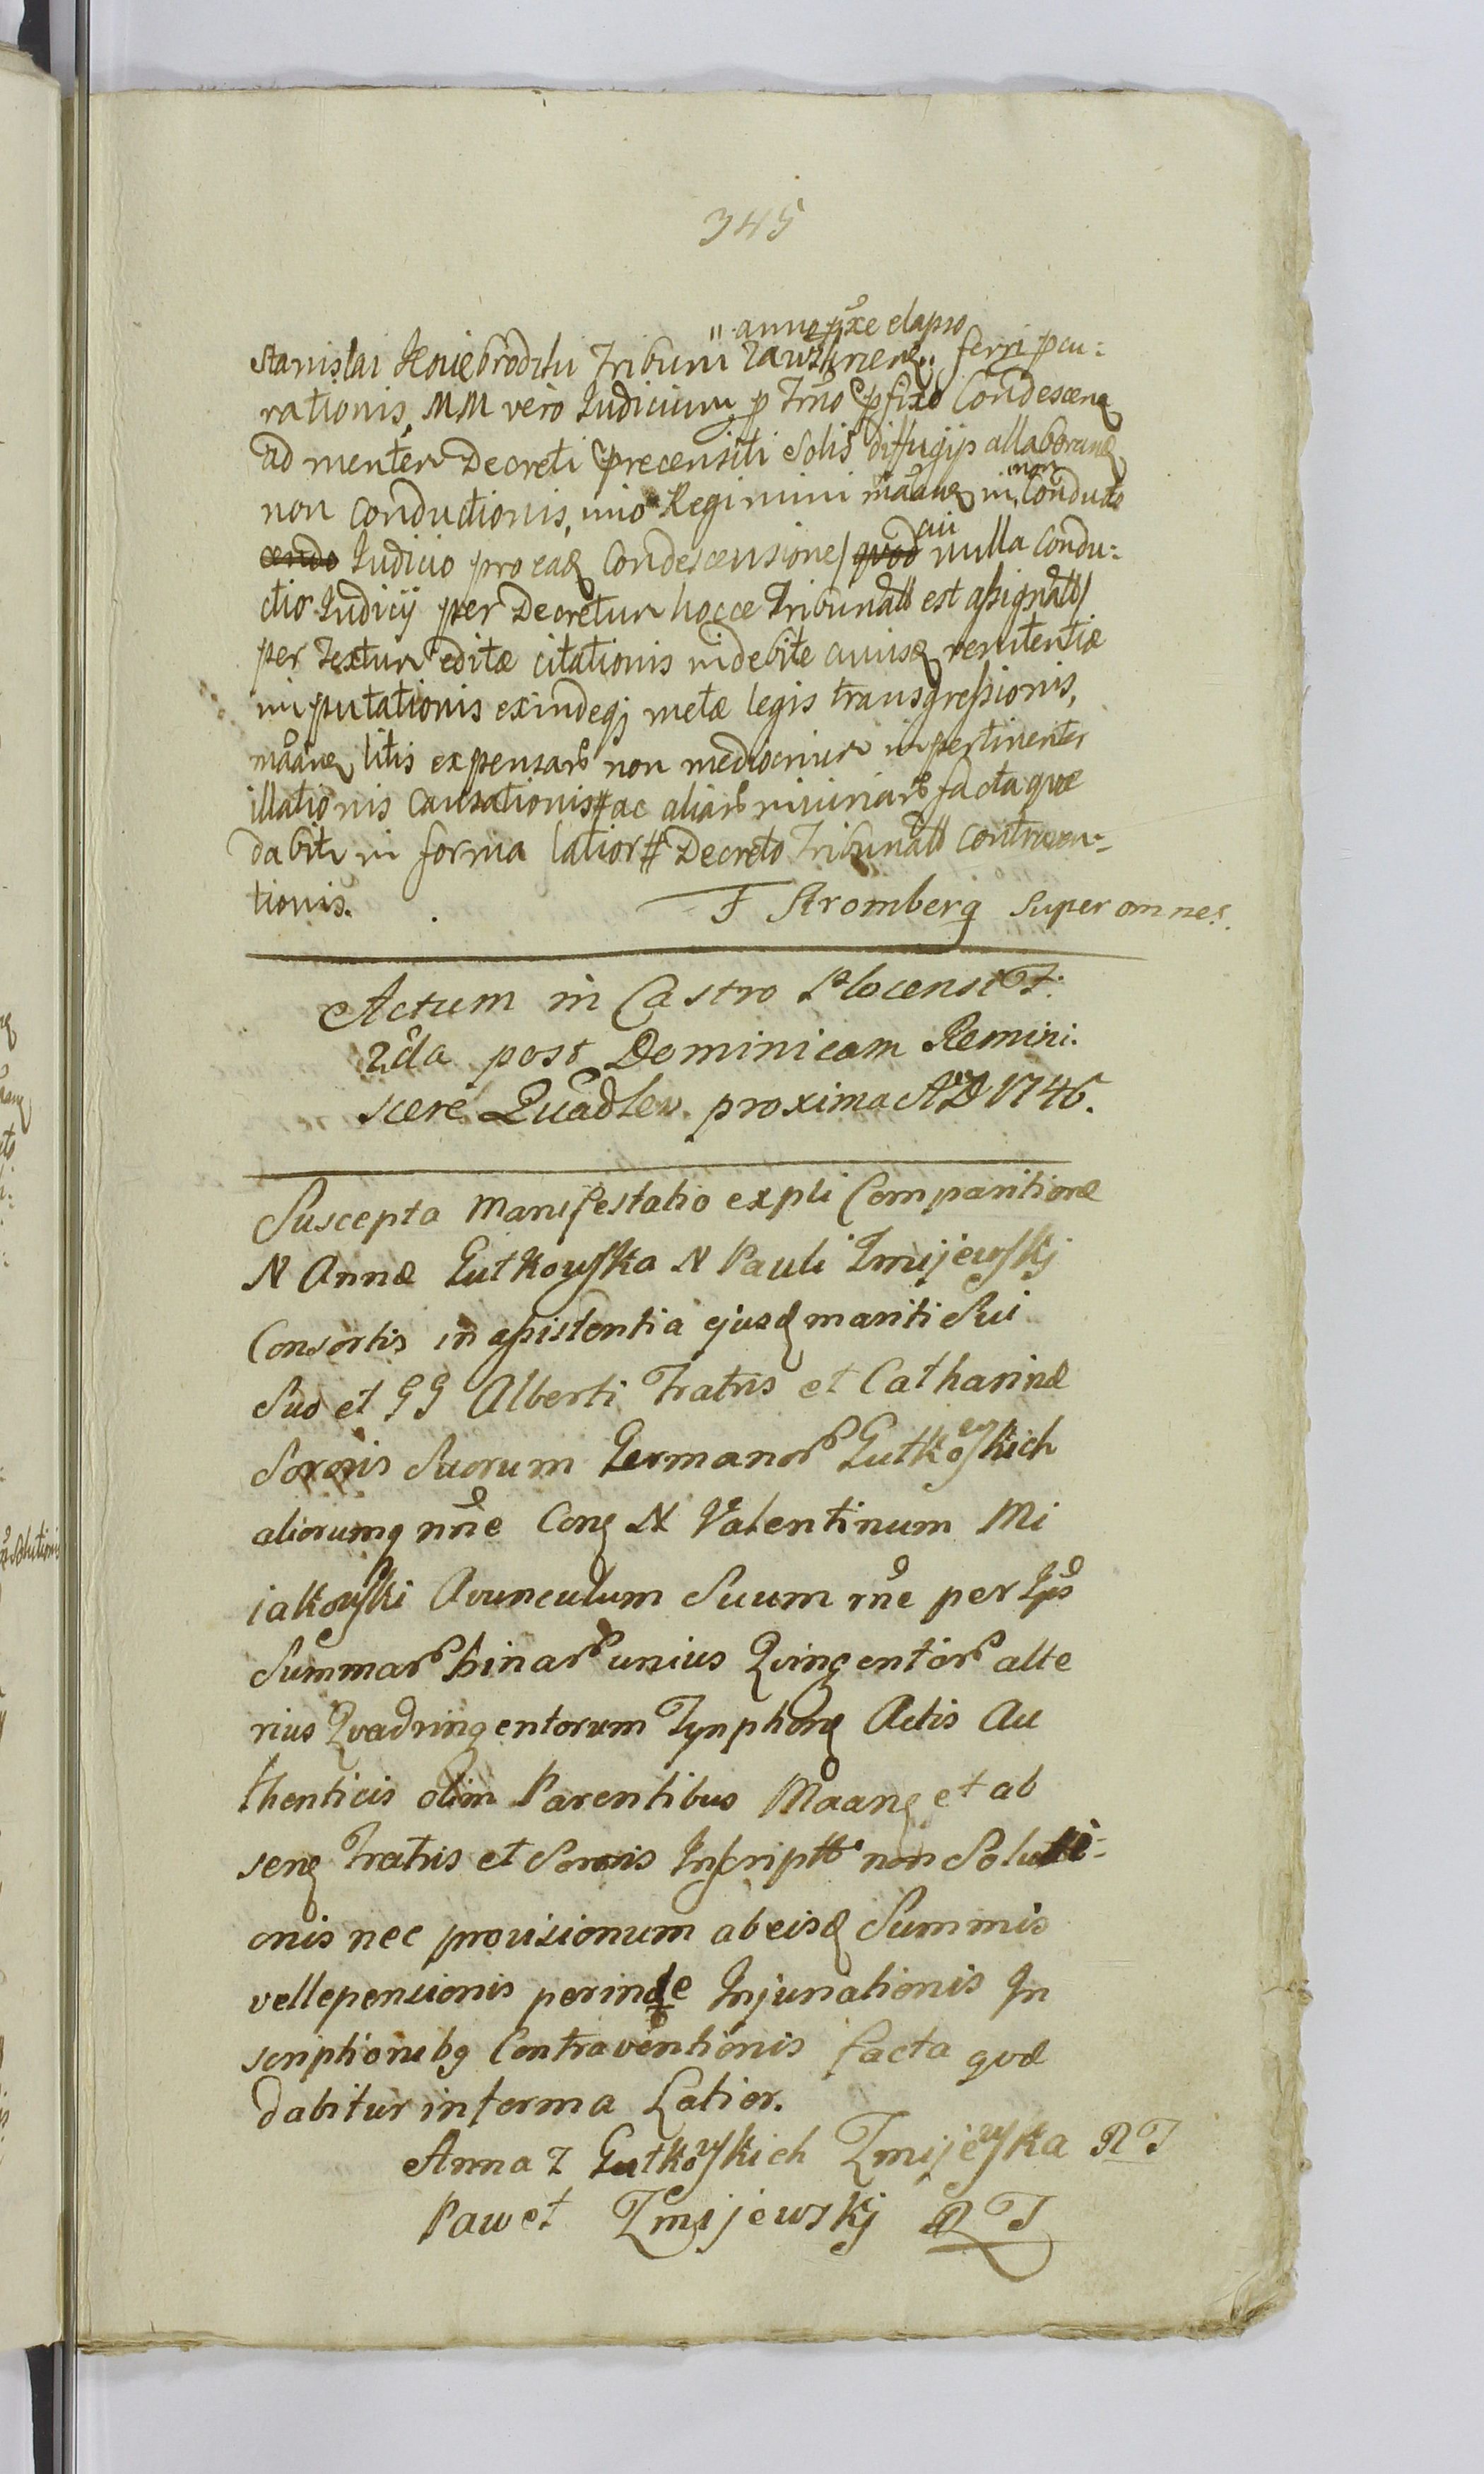 345
anno pxe elapso
Stanislai Koziebrodzki Tribuni Zawskrnen. ferri pcu:
rationis, MM vero Iudicium p Tmo pfixo Condescen
ad mentem Decreti precensiti Solis diffugijs allaboran
non Conductionis, imo Regimini maane in non Conducto
cendo Iudicio pro eaq Condescensione/ quod cui nulla Condu:
ctio Iudicij per Decretum hocce Tribunall est assignatt/
per Textum editæ citationis indebite cuiusq renitentiæ
imputationis exindeq metæ legis transgressionis,
maane litis expensar non mediocrium impertinenter
illationis Causationis # ac aliar iniuriar facta quæ
dabitr in forma latior # Decreto Tribunall Contraven-
tionis.
F Stromberg super omnes.
Actum in Castro Plocensi F.
2da post Dominicam Remini.
scere Quadlem. proxima AD 1746.
Suscepta Manifestatio expli Comparitione
N Annæ Gutkowska N Pauli Zmijewskj
Consortis in assistentia ejusq mariti Sui
Suo et GG Alberti Fratris et Catharinæ
Sororis Suorum Germanor Gutkowskich
aliorumq nne Conq N Valentinum Mi
jakowski Avunculum Suum rne per Ips
Summar binar unius Qvingentor alte
rius Qvadringentorum Tynphonq Actis Au
thenticis olim Parentibus Maanq et ab
senq Fratris et Sororis Inscriptt non Soluti-
onis nec provisionum ab eisq Summis
vellepensionis perinde Injuriationis In
scriptionibq Contraventionis facta qvæ
dabitur in forma Latior.
Anna z Gutkowskich Zmijewska RT
Paweł Zmijewskj RT